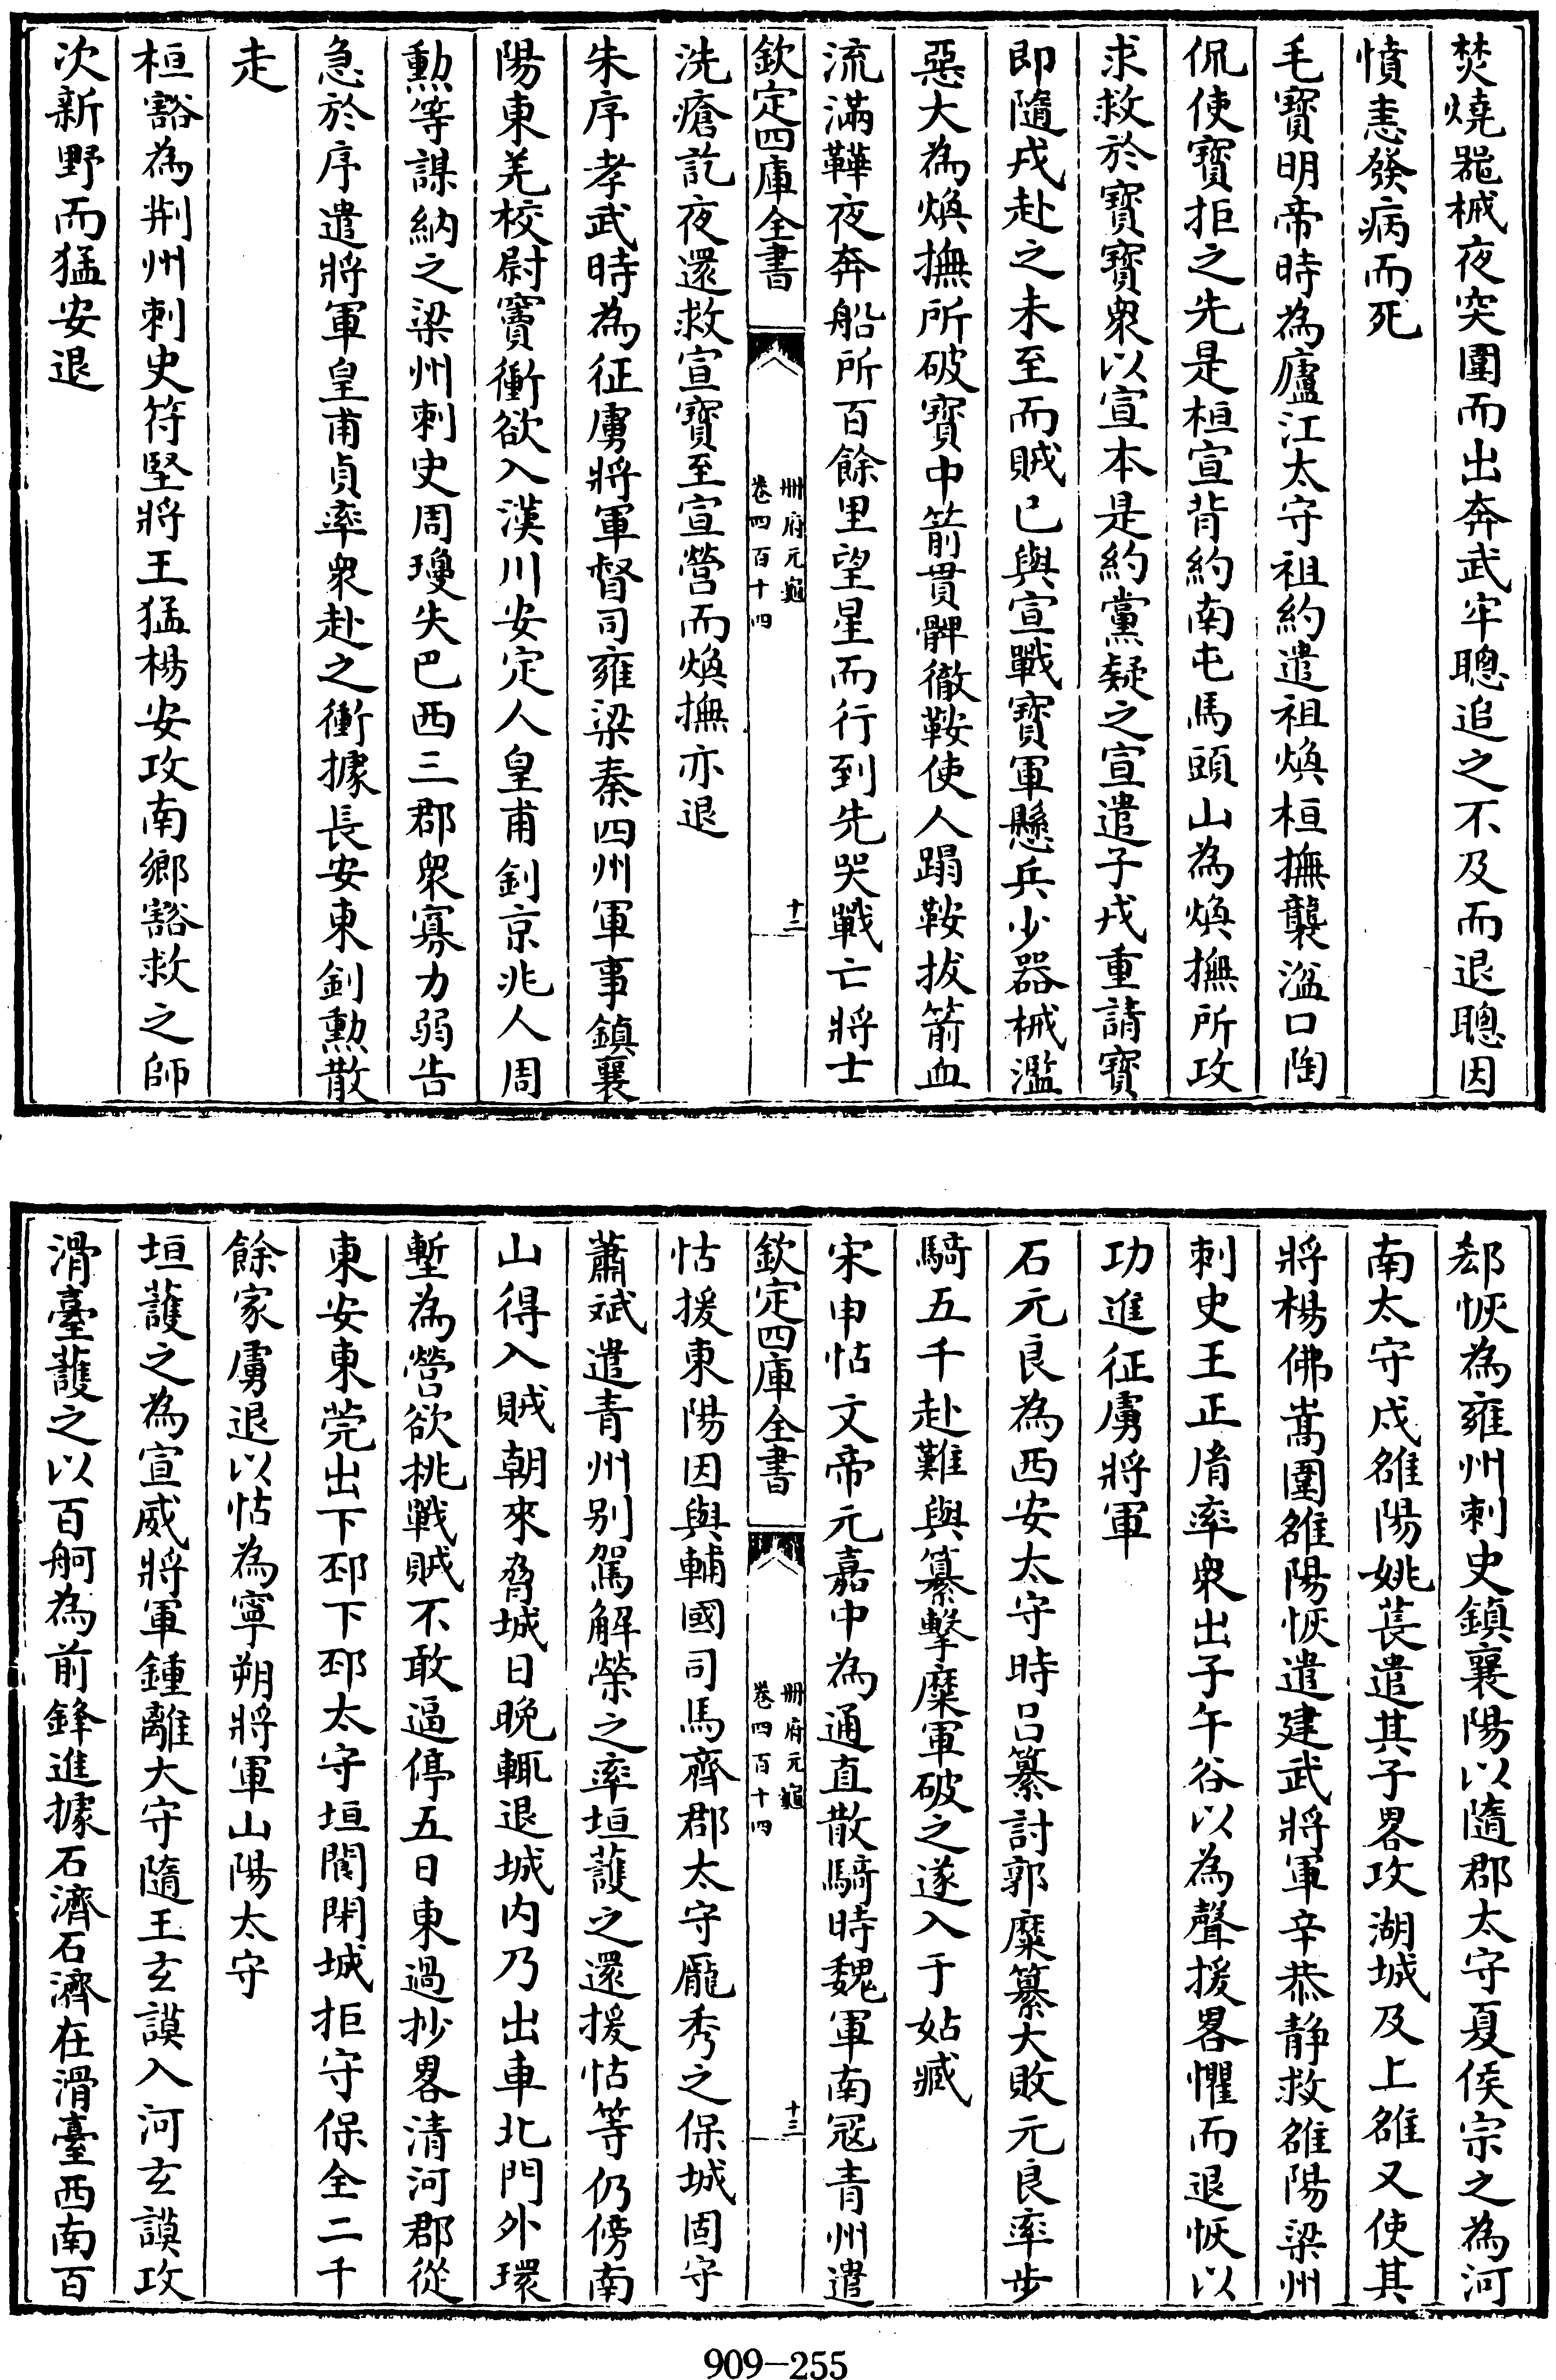 焚燒噐械夜突圍而出奔武牢聰追之不及而退聰因
憤恚發病而死
毛寶明帝時為廬江太守祖約遣祖煥桓撫襲湓口陶
侃使寶拒之先是桓宣背約南屯馬頭山為煥撫所攻
求救於寶寶衆以宣本是約黨疑之宣遣子戎重請寶
即隨戎赴之未至而賊已與宣戰寶軍懸兵少器械濫
惡大為煥撫所破寶中箭貫髀徹鞍使人蹋鞍拔箭血
流滿鞾夜奔船所百餘里望星而行到先哭戰亡將士
欽定四庫全書
冊府元龜
卷四百十四
十二
洗瘡訖夜還救宣寶至宣營而煥撫亦退
朱序孝武時為征虜將軍督司雍梁秦四州軍事鎮襄
陽東羌校尉竇衝欲入漢川安定人皇甫釗京兆人周
勲等謀納之梁州刺史周瓊失巴西三郡衆寡力弱告
急於序遣將軍皇甫貞率衆赴之衝據長安東釗勲散
走
桓豁為荆州刺史符堅將王猛楊安攻南鄉豁救之師
次新野而猛安退
郄恢為雍州刺史鎮襄陽以隨郡太守夏侯宗之為河
南太守戍雒陽姚萇遣其子畧攻湖城及上雒又使其
將楊佛嵩圍雒陽恢遣建武將軍辛恭静救雒陽梁州
刺史王正胤率衆出子午谷以為聲援畧懼而退恢以
功進征虜將軍
石元良為西安太守時吕纂討郭糜纂大敗元良率步
騎五千赴難與纂擊糜軍破之遂入于姑臧
宋申怙文帝元嘉中為通直散騎時魏軍南寇青州遣
欽定四庫全書
冊府元龜
卷四百十四
十三
怙援東陽因與輔國司馬齊郡太守龐秀之保城固守
蕭斌遣青州别駕解榮之率垣護之還援怙等仍傍南
山得入賊朝來脅城日晚輒退城内乃出車北門外環
塹為營欲挑戰賊不敢逼停五日東過抄畧清河郡從
東安東莞出下邳下邳太守垣閬閉城拒守保全二千
餘家虜退以怙為寧朔將軍山陽太守
垣護之為宣威將軍鍾離大守隨王玄謨入河玄謨攻
滑臺護之以百舸為前鋒進據石濟石濟在滑臺西南百
909-255